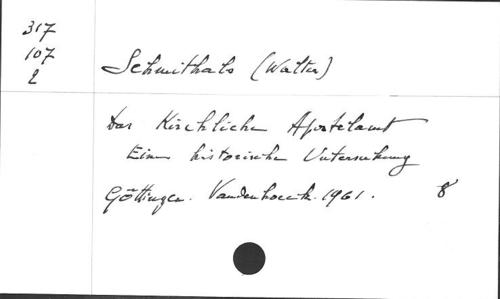 317
107
2
Schmithals (Walter)
Das Kirchliche Apostelamt
Eine historische Untersuchung
Göttingen. Vandenhoeck. 1961. 8°